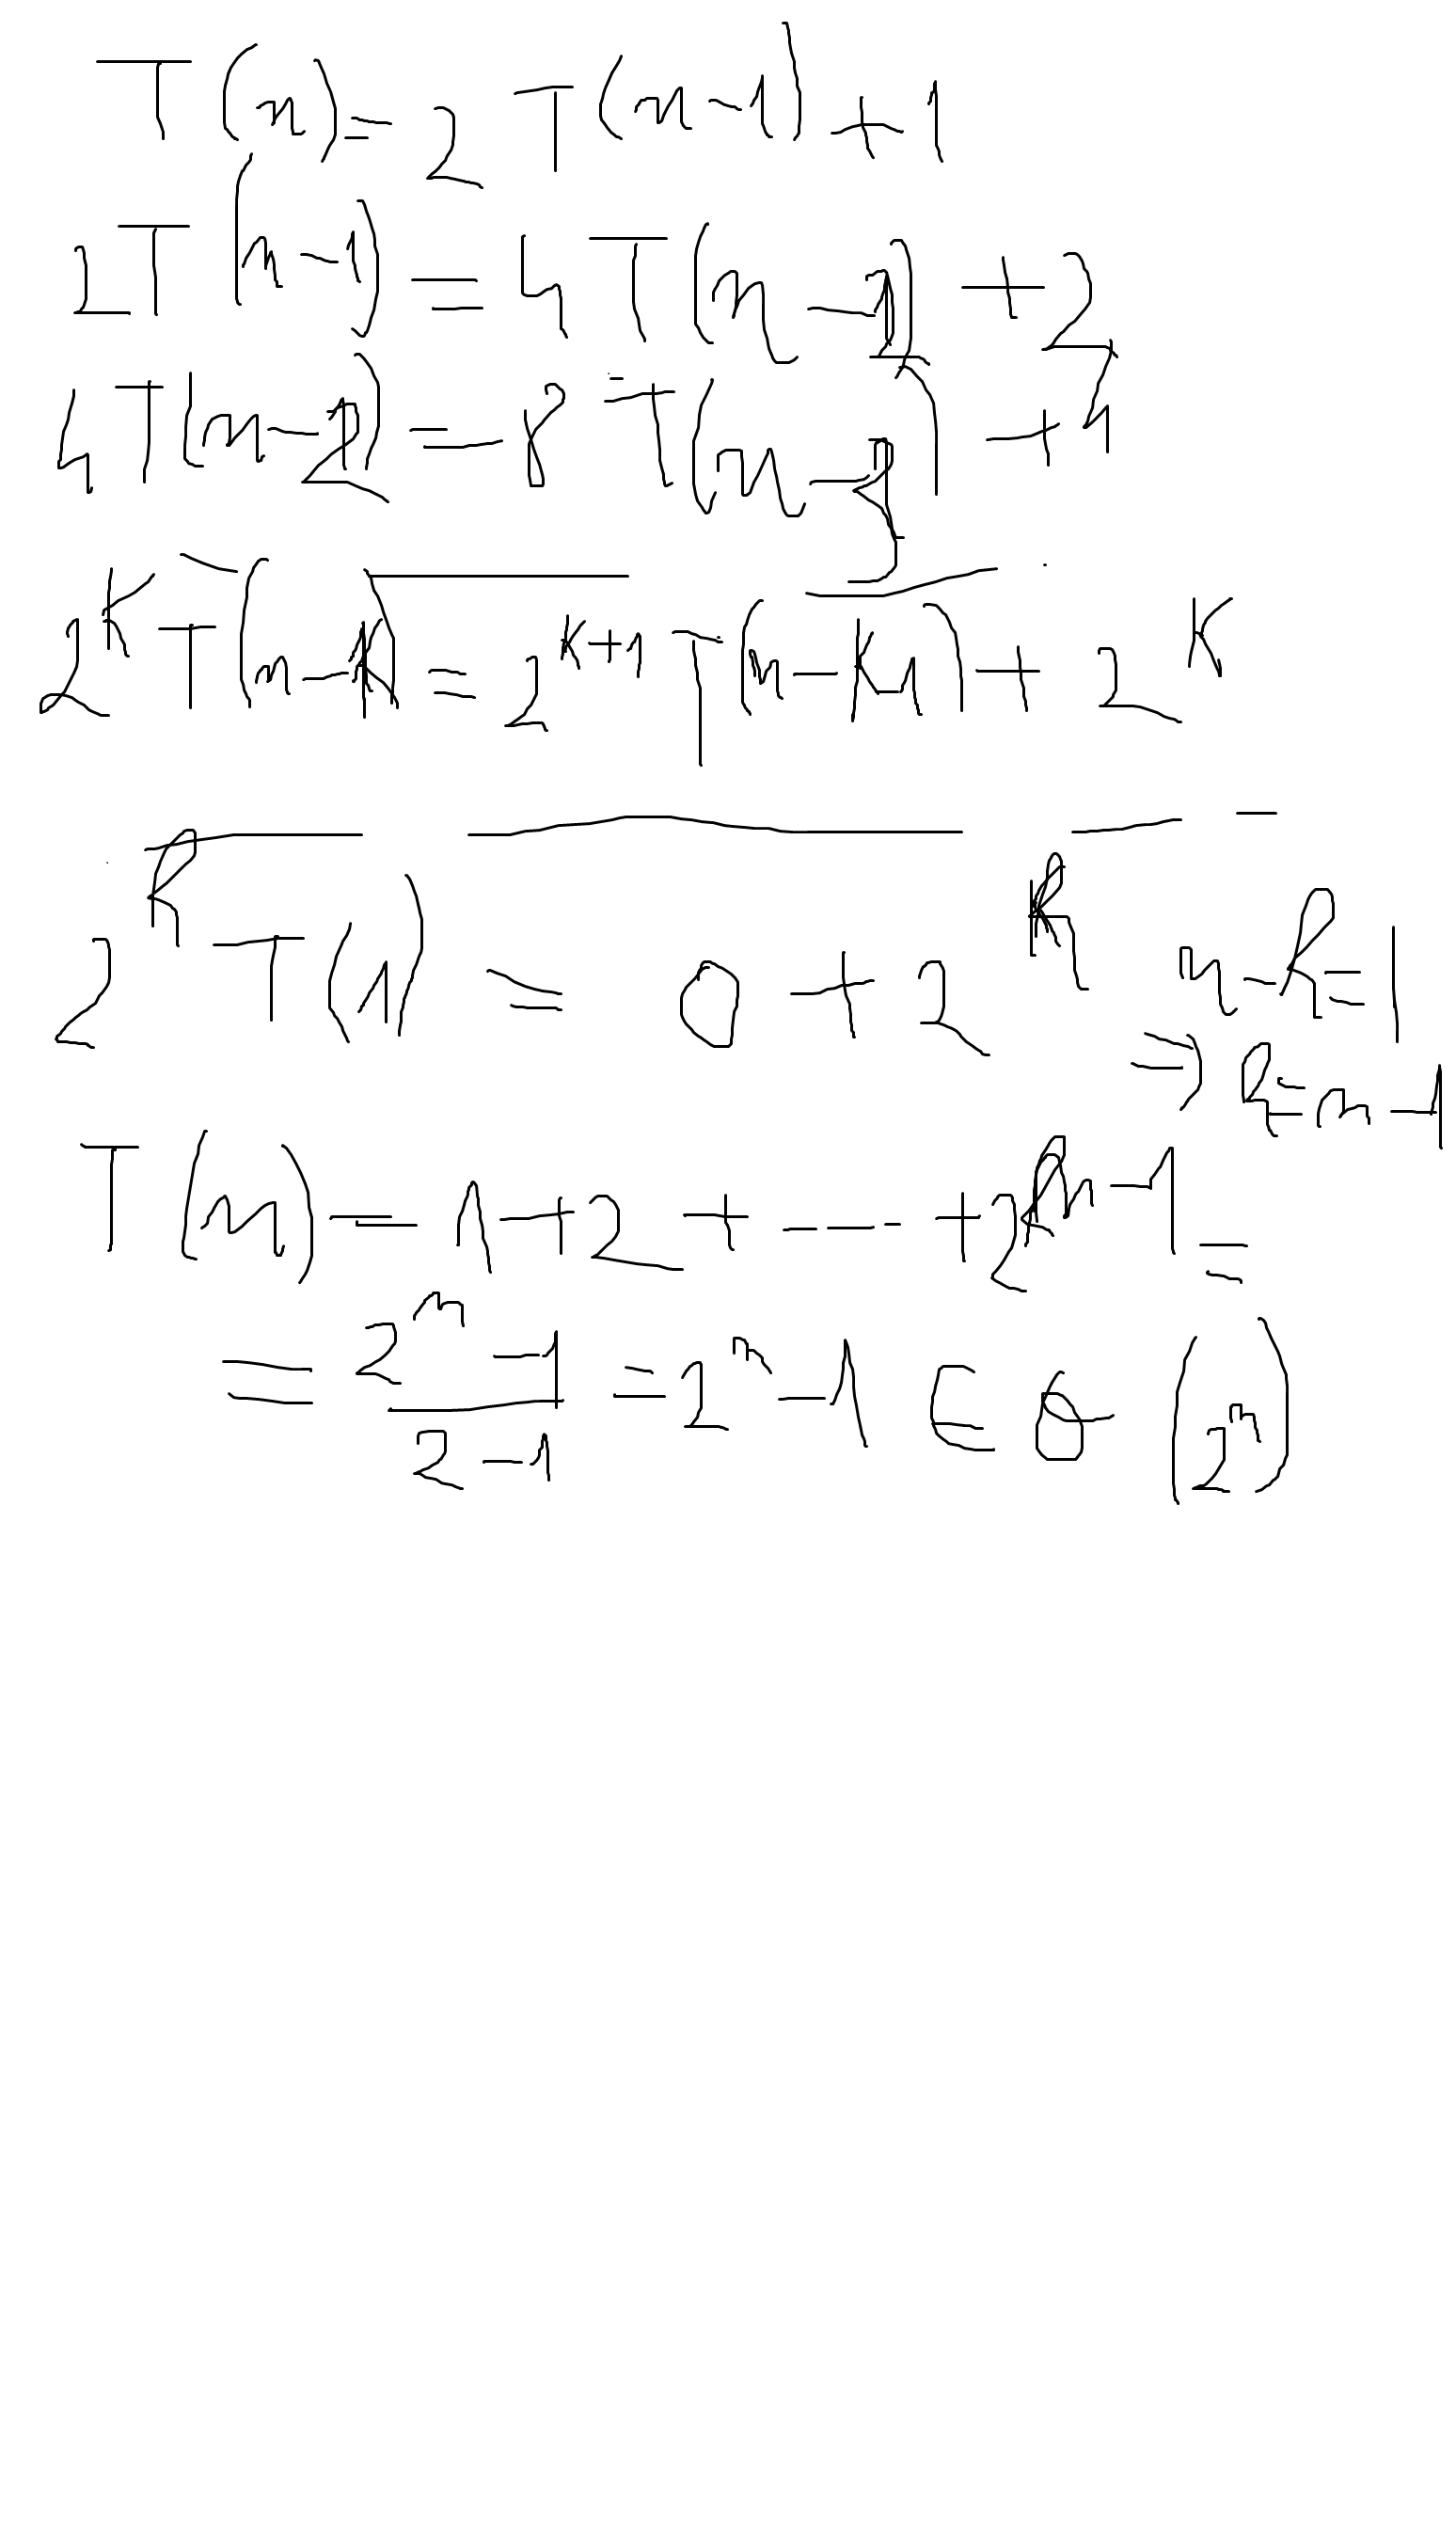 T(n) = 2 T(n-1) + 1
2T(n-1) = 4 T(n-2) + 2
4T(n-2) = 8 T(n-3) + 4
2^K T(n-k) = 2^{K+1} T(n-K-1) + 2^K
2^k T(1) = 0 + 2^k n-k=1
⇒ k=n-1
T(n) = 1+2+ ---- +2^{n-1} =
= \frac{2^n - 1}{2-1} = 2^n - 1 ∈ Θ (2^n)